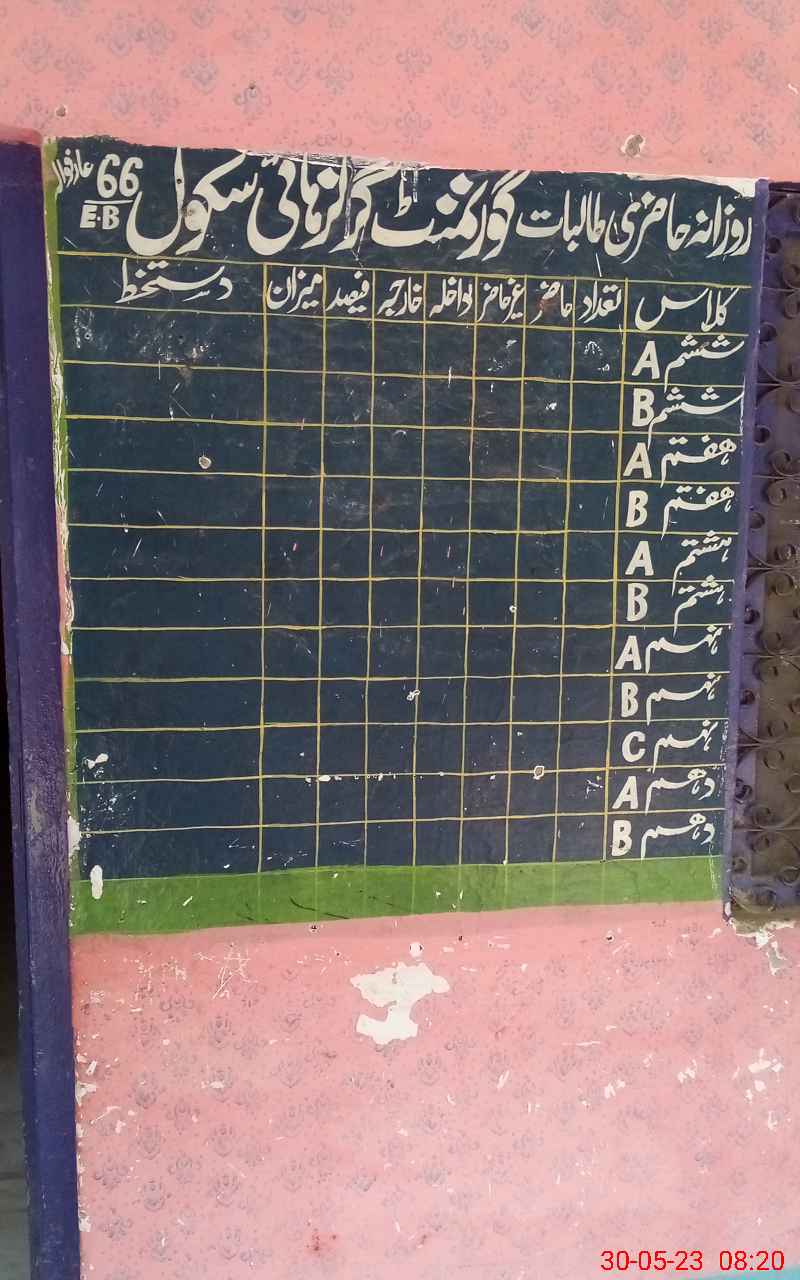 روزانہ حاضری طالبات گورنمنٹ گرلز ہائی سکول 66/E-B عارفوالہ
کلاس تعداد حاضر غیرحاضر داخلہ خارجہ فیصد میزان دستخط
ششم A
ششم B
ہفتم A
ہفتم B
ہشتم A
ہشتم B
نہم A
نہم B
نہم C
دہم A
دہم B
30-05-23 08:20